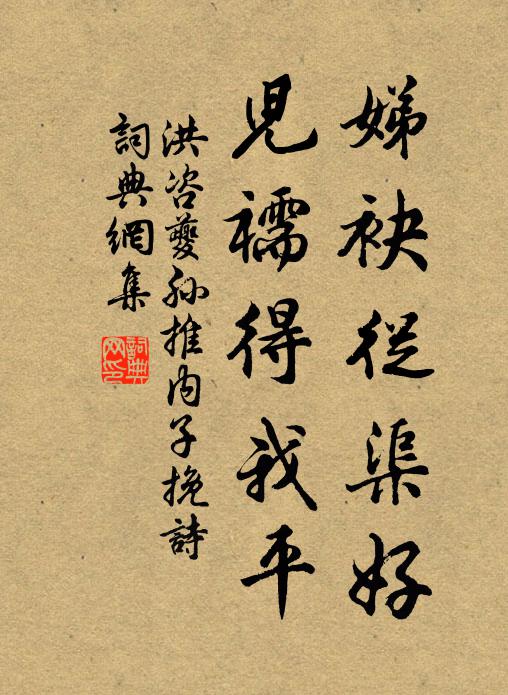 娣袂從渠好
兒襦得我平
洪咨夔孫推内子挽詩
詞典網集
詞典网印